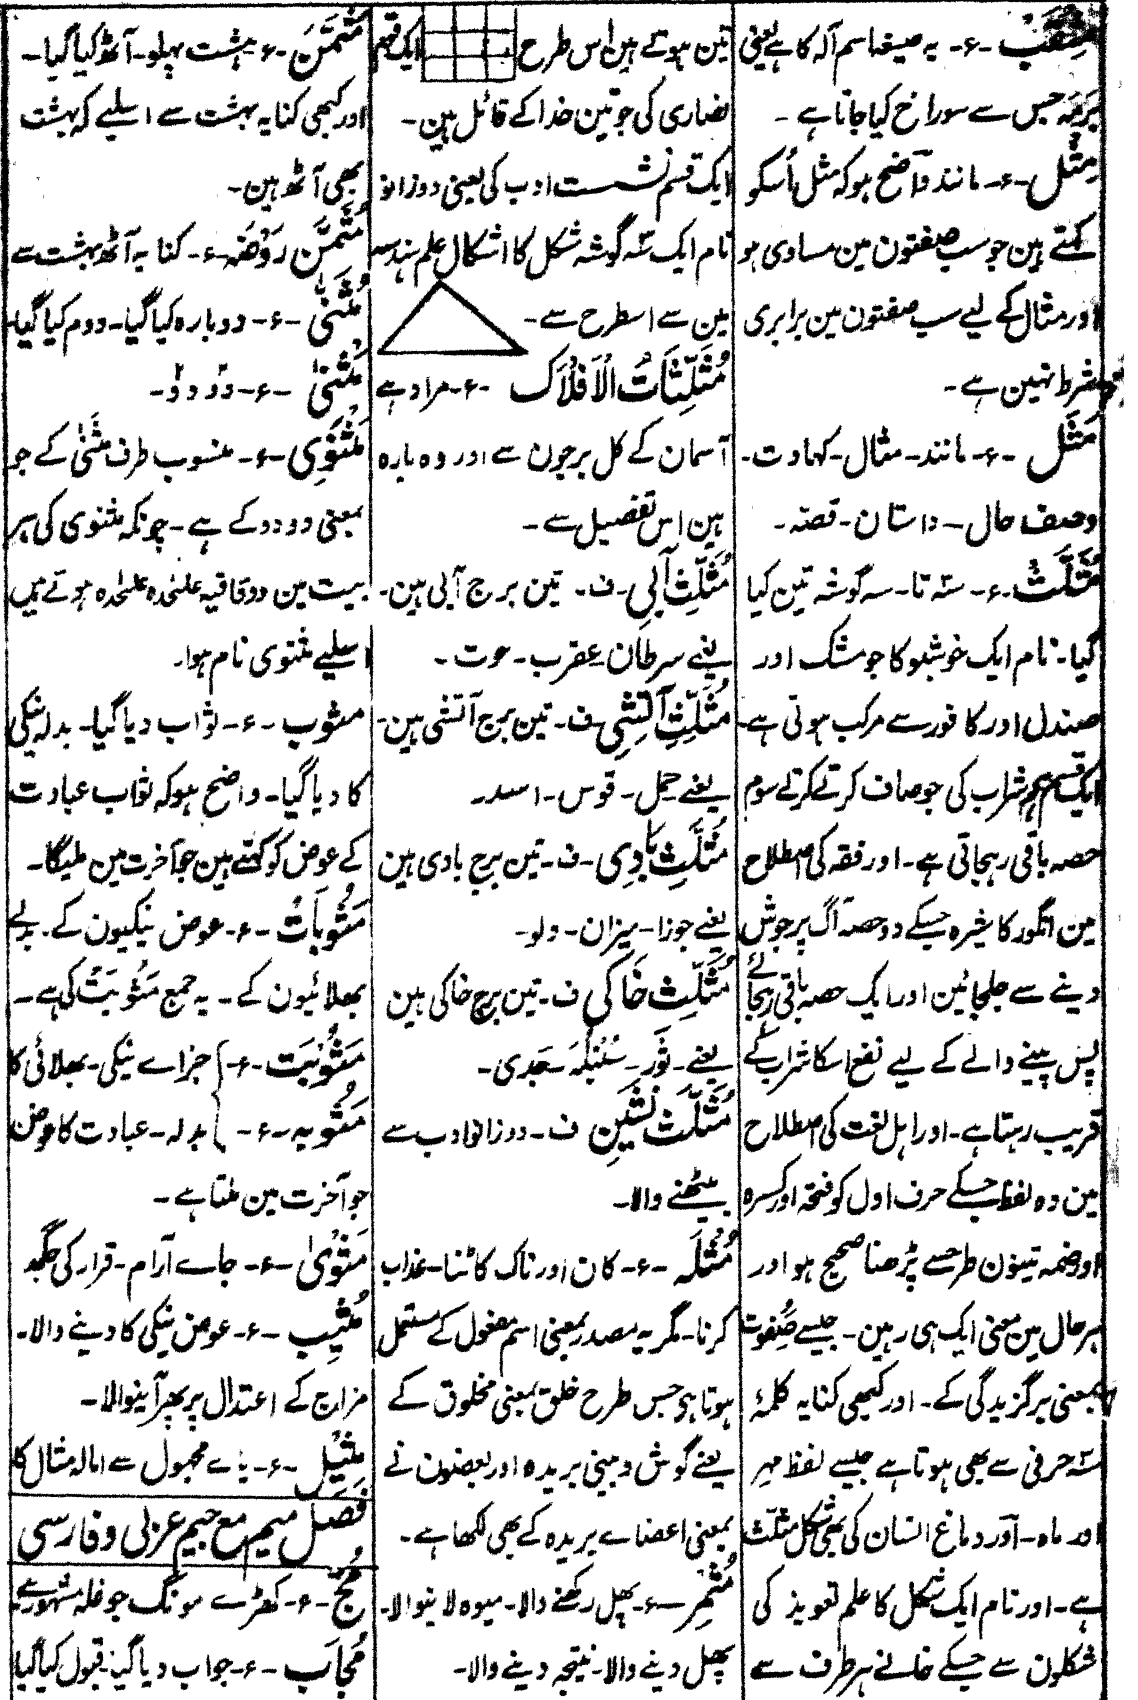 مِثقَب ۔ ع ۔ یہ صیغہ اسم آلہ کا ہے یعنی
برمہ جس سے سوراخ کیا جاتا ہے ۔
مِثل ۔ ع ۔ مانند واضح ہو کہ مثل اُسکو
کہتے ہین جو سب صفتون مین مساوی ہو
اور مثال کے لیے سب صفتون مین برابری
شرط نہین ہے ۔
مَثَل ۔ ع ۔ مانند ۔ مثال ۔ کہاوت ۔
وصف حال ۔ داستان ۔ قصہ ۔
مُثَلَّث ۔ ع ۔ سہ تا ۔ سہ گوشہ تین کیا
گیا ۔ نام ایک خوشبو کا جو مشک اور
صندل اور کافور سے مرکب ہوتی ہے ۔
ایک قسم شراب کی جو صاف کرتے کرتے سوم
حصہ باقی رہجاتی ہے ۔ اور فقہ کی اصطلاح
مین انگور کا شیرہ جسکے دو حصہ آگ پر جوش
دینے سے جلجائین اور ایک حصہ باقی رہجائے
پس پینے والے کے لیے نفع اسکا شراب کے
قریب رہتا ہے ۔ اور اہل لغت کی اصطلاح
مین وہ لفظ جسکے حرف اول کو فتحہ اور کسرہ
اور ضمہ تینون طرحسے پڑھنا صحیح ہو اور
ہر حال مین معنی ایک ہی رہین ۔ جیسے صفوت
بمعنی برگزیدگی کے ۔ اور کبھی کنایہ کلمۂ
سہ حرفی سے بھی ہوتا ہے جیسے لفظ مہر
اور ماہ ۔ اور دماغ انسان کی بھی شکل مثلث
ہے ۔ اور نام ایک شکل کا علم تعویذ کی
شکلون سے جسکے خانے ہر طرف سے
تین ہوتے ہین اس طرح ایک قسم
نصاریٰ کی جو تین خدا کے قائل ہین ۔
ایک قسم نشست ادب کی یعنی دوزانو
نام ایک سہ گوشہ شکل کا اشکال علم ہندسہ
مین سے اسطرح سے ۔
مُثَلَّثَاتُ الاَفلَاک ۔ ع ۔ مراد ہے
آسمان کے کل برجون سے اور وہ بارہ
ہین اس تفصیل سے ۔
مُثَلَّثِ آبِی ۔ ف ۔ تین برج آبی ہین ۔
یعنے سرطان ۔ عقرب ۔ حوت ۔
مُثَلَّثِ آتِشِی ۔ ف ۔ تین برج آتشی ہین ۔
یعنے حمل ۔ قوس ۔ اسد ۔
مُثَلَّثِ بَادِی ۔ ف ۔ تین برج بادی ہین
یعنے جوزا ۔ میزان ۔ دلو ۔
مُثَلَّثِ خَاکِی ف ۔ تین برج خاکی ہین
یعنے ۔ ثور ۔ سُنبُلَہ ۔ جدی ۔
مُثَلَّث نَشِین ف ۔ دوزانو ادب سے
بیٹھنے والا ۔
مُثلَہ ۔ ع ۔ کان اور ناک کاٹنا ۔ عذاب
کرنا ۔ مگر یہ مصدر بمعنی اسم مفعول کے مستعمل
ہوتا ہی جس طرح خلق بمعنی مخلوق کے
یعنے گوش و بینی بریدہ اور بعضون نے
بمعنی اعضاے بریدہ کے بھی لکھا ہے ۔
مُثمِر ۔ ع ۔ پھل رکھنے والا ۔ میوہ لانیوالا ۔
پھل دینے والا ۔ نتیجہ دینے والا ۔
مُثَمَّن ۔ ع ۔ ہشت پہلو ۔ آٹھ کیا گیا ۔
اور کبھی کنایہ بہشت سے اسلیے کہ بہشت
بھی آٹھ ہین ۔
مُثَمَّن رَوضَہ ۔ ع ۔ کنایہ آٹھ بہشت سے
مُثَنّٰی ۔ ع ۔ دوبارہ کیا گیا ۔ دوم کیا گیا ۔
مَثنٰی ۔ ع ۔ دو دو ۔
مَثنَوِی ۔ ع ۔ منسوب طرف مثنیٰ کے جو
بمعنی دو دو کے ہے ۔ چونکہ مثنوی کی ہر
بیت مین دو قافیہ علٰحدہ علٰحدہ ہوتے ہیں
اسلیے مثنوی نام ہوا ۔
مثوب ۔ ع ۔ ثواب دیا گیا ۔ بدلہ نیکی
کا دیا گیا ۔ واضح ہو کہ ثواب عبادت
کے عوض کو کہتے ہین جو آخرت مین ملیگا ۔
مَثُوبَات ۔ ع ۔ عوض نیکیون کے ۔ بدلے
بھلائیون کے ۔ یہ جمع مثوبت کی ہے ۔
مَثُوبَت ۔ ع ۔ } جزاے نیکی ۔ بھلائی کا
مَثُوبہ ۔ ع ۔ } بدلہ ۔ عبادت کا عوض
جو آخرت مین ملتا ہے ۔
مَثوٰی ۔ ع ۔ جاے آرام ۔ قرار کی جگہ
مُثِیب ۔ ع ۔ عوض نیکی کا دینے والا ۔
مزاج کے اعتدال پر پھر آنیوالا ۔
مثیل ۔ ع ۔ یاے مجہول سے امالہ مثال کا
فصل میم مع جیم عربی و فارسی
مُجّ ۔ ع ۔ کھڑے مونگ جو غلہ مشہور ہے
مُجَاب ۔ ع ۔ جواب دیا گیا ۔ قبول کیا گیا